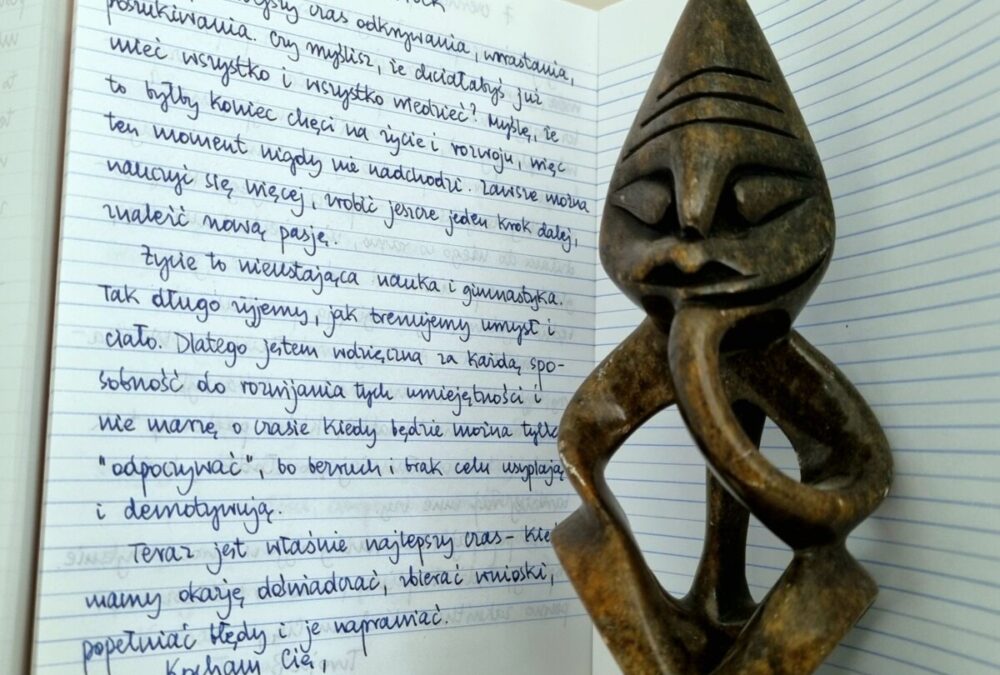 czas odkrywania, wzrastania,
poszukiwania. Czy myślisz, że chciałabyś już
mieć wszystko i wszystko wiedzieć? Myślę, że
to byłby koniec chęci na życie i rozwoju, więc
ten moment nigdy nie nadchodzi. Zawsze można
nauczyć się więcej, zrobić jeszcze jeden krok dalej,
znaleźć nową pasję.
Życie to nieustająca nauka i gimnastyka.
Tak długo żyjemy, jak trenujemy umysł i
ciało. Dlatego jestem wdzięczna za każdą spo-
sobność do rozwijania tych umiejętności i
nie marzę o czasie kiedy będzie można tylko
"odpoczywać", bo bezruch i brak celu usypiają
i demotywują.
Teraz jest właśnie najlepszy czas - kie
mamy okazję doświadczać, zbierać wnioski,
popełniać błędy i je naprawiać.
Kocham Cię,